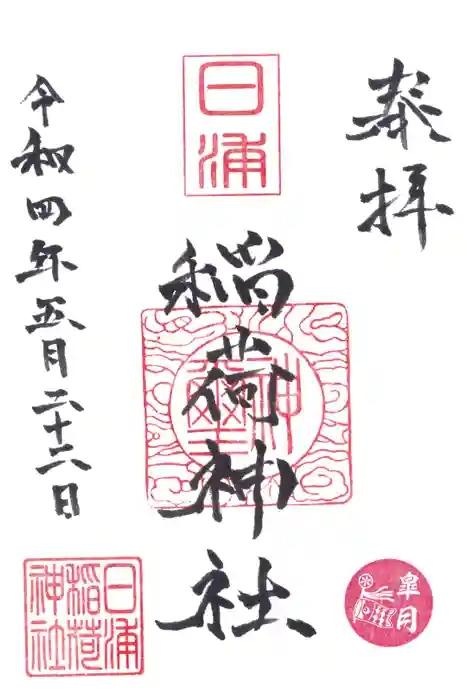 奉拝
日浦
稲荷神社
神璽
令和四年五月二十二日
日浦稲荷神社
皐月